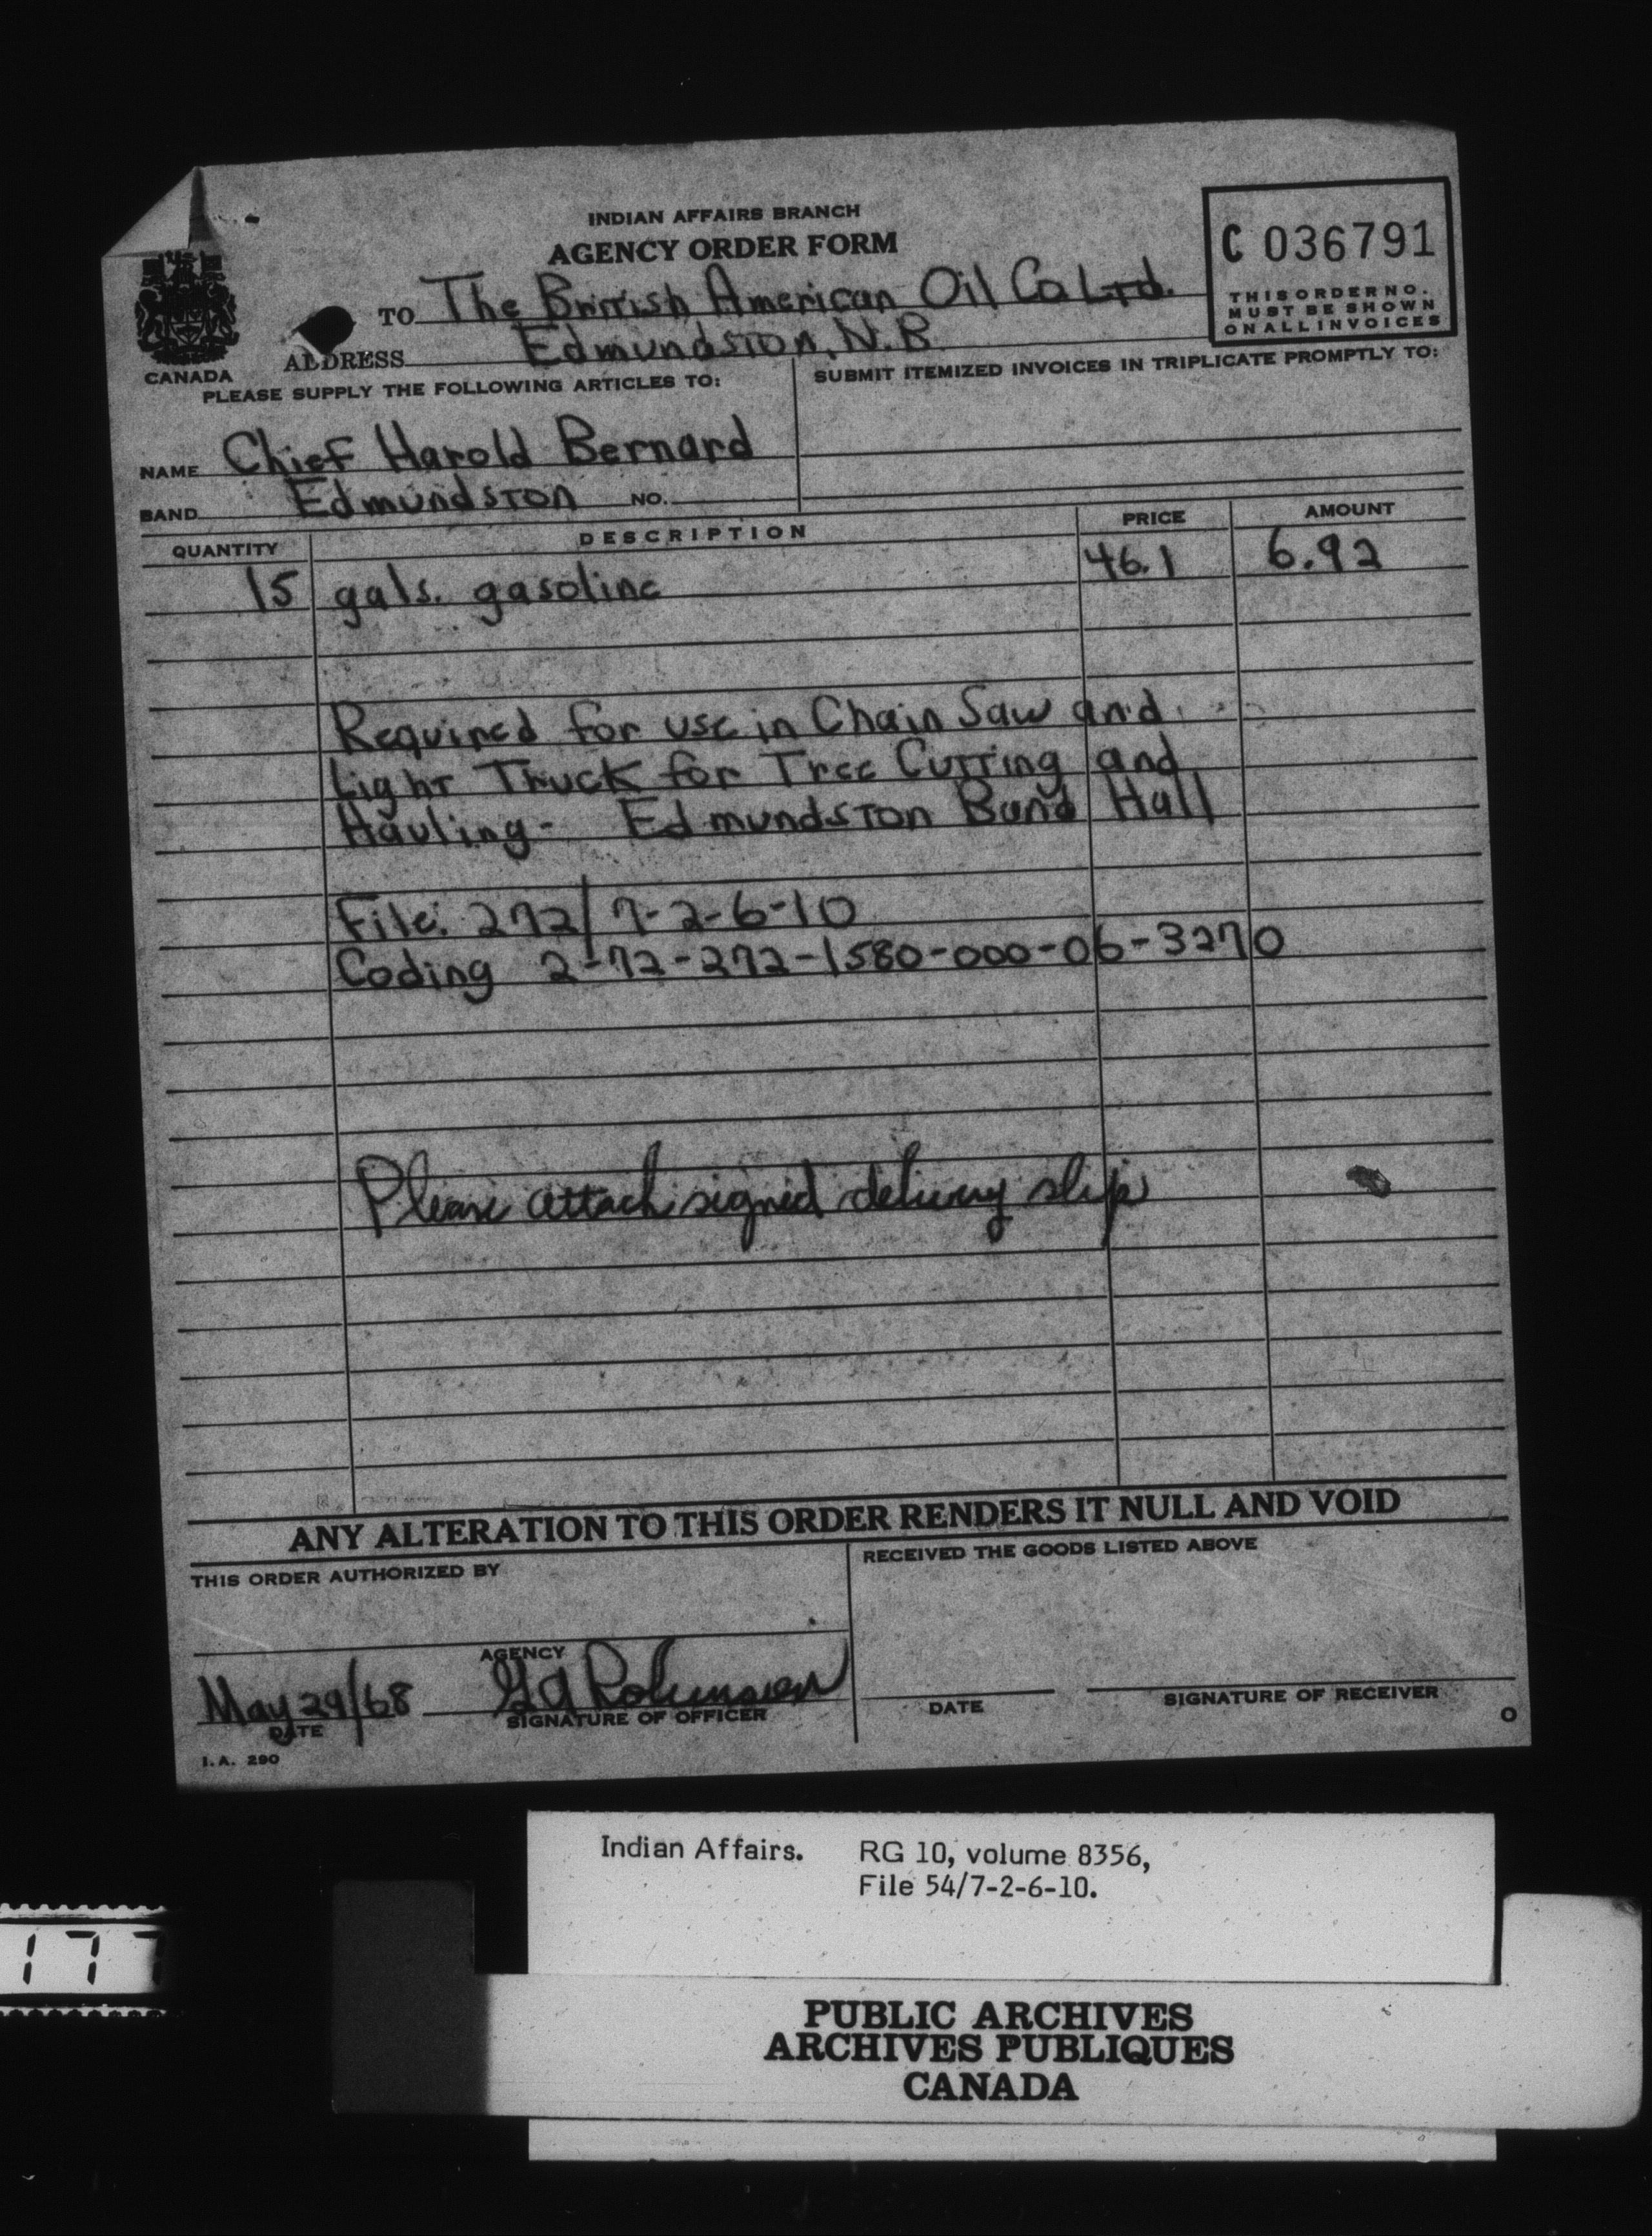 INDIAN AFFAIRS BRANCH
AGENCY ORDER FORM
C 036791
THIS ORDER NO.
MUST BE SHOWN
ON ALL INVOICES
CANADA
TO The British American Oil Co Ltd.
ADDRESS Edmundston, N.B.
PLEASE SUPPLY THE FOLLOWING ARTICLES TO:
SUBMIT ITEMIZED INVOICES IN TRIPLICATE PROMPTLY TO:
NAME Chief Harold Bernard
BAND Edmundston NO.
QUANTITY DESCRIPTION PRICE AMOUNT
15 gals. gasoline 46.1 6.92
Required for use in Chain Saw and
Light Truck for Tree Cutting and
Hauling - Edmundston Band Hall
File: 272/7-2-6-10
Coding 2-72-272-1580-000-06-3270
Please attach signed delivery slip
ANY ALTERATION TO THIS ORDER RENDERS IT NULL AND VOID
THIS ORDER AUTHORIZED BY
RECEIVED THE GOODS LISTED ABOVE
AGENCY
May 29/68 Robinson
DATE SIGNATURE OF OFFICER
DATE SIGNATURE OF RECEIVER
I.A. 290
O
Indian Affairs. RG 10, volume 8356,
File 54/7-2-6-10.
177
PUBLIC ARCHIVES
ARCHIVES PUBLIQUES
CANADA